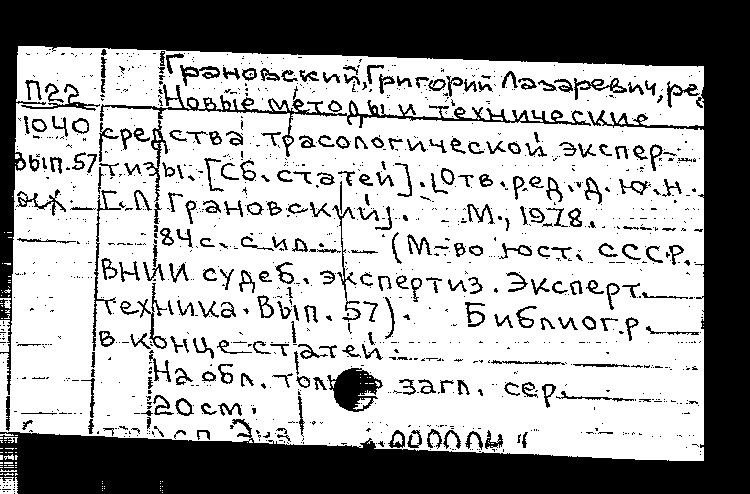 Грановский, Григорий Лазаревич, ред
П22 Новые методы и технические
1040 средства трасологической экспер-
вып.57 тизы. [Сб. статей]. [Отв. ред. д. ю. н.
Г. Л. Грановский]. М., 1978.
84 с. с ил. (М-во юст. СССР.
ВНИИ судеб. экспертиз. Эксперт.
техника. Вып. 57). Библиогр.
в конце статей.
На обл. только загл. сер.
20 см.